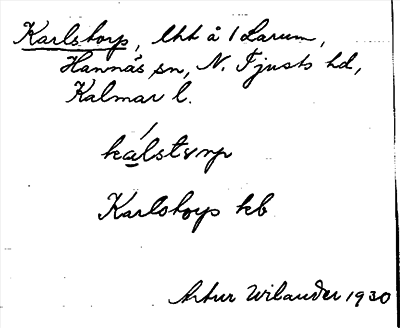 Karlstorp, lht å 1 Larum,
Hannäs sn, N. Tjusts hd,
Kalmar l.
kálstrp
Karlstorps kb
Artur Wilander 1930